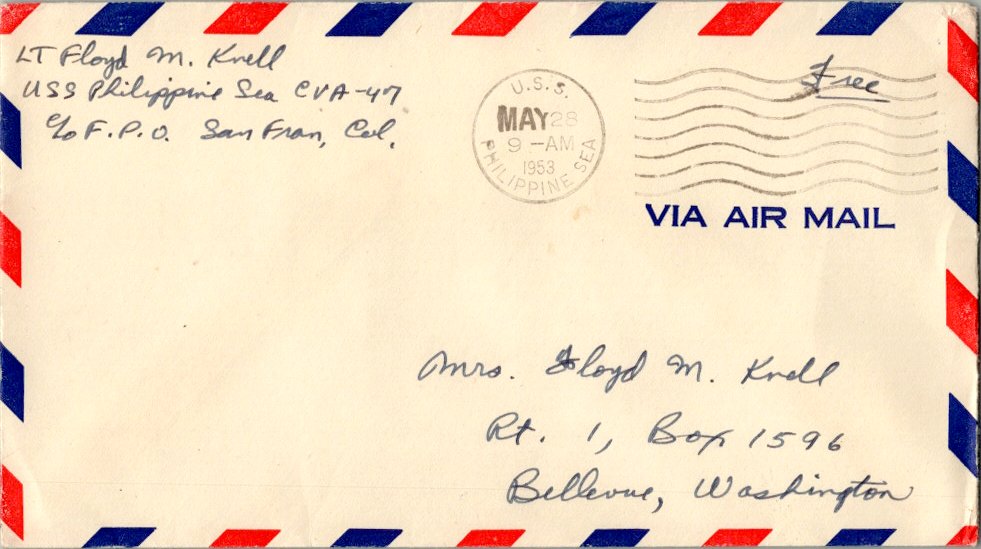 LT Floyd M. Knell
USS Philippine Sea CVA-47
c/o F.P.O. San Fran, Cal.
U.S.S.
MAY 28
9 -AM
1953
PHILIPPINE SEA
Free
VIA AIR MAIL
Mrs. Floyd M. Knell
Rt. 1, Box 1596
Bellevue, Washington